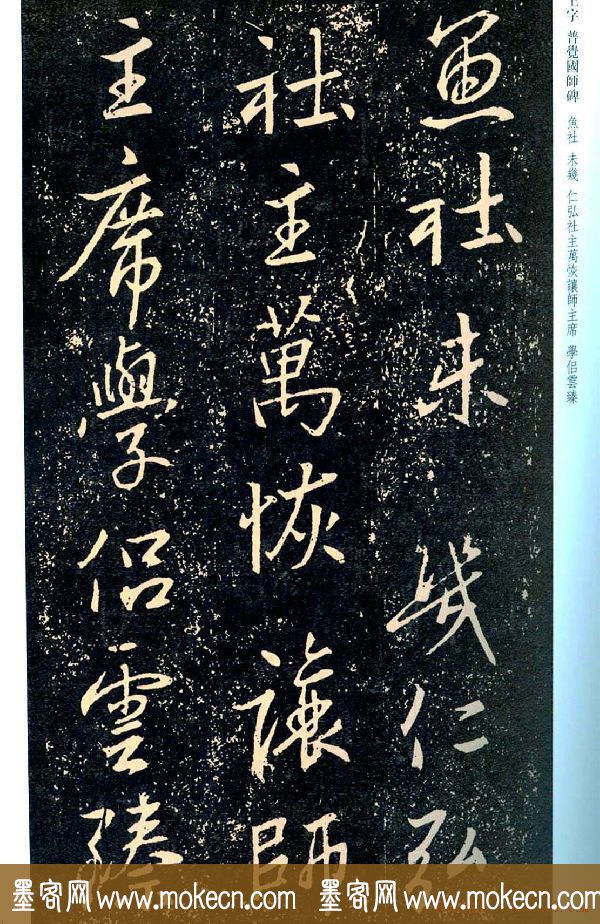 王字 普覺國師碑 魚社 未幾 仁弘社主萬恢讓師主席 學侶雲臻
魚社未幾仁弘
社主萬恢讓師
主席學侶雲臻
墨客网 www.mokecn.com 墨客网 www.mokecn.com